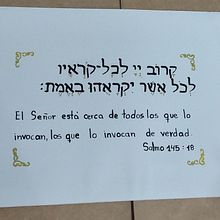 קָרוֹב יְיָ לְכָל-קֹרְאָיו
לְכֹל אֲשֶׁר יִקְרָאֻהוּ בֶאֱמֶת:
El Señor está cerca de todos los que lo
invocan, los que lo invocan de verdad.
Salmo 145:18